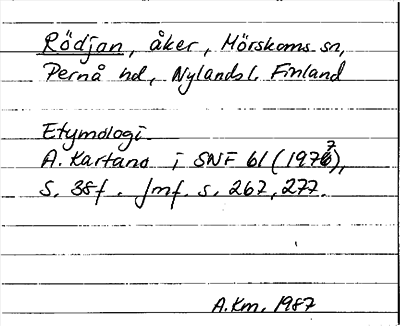 Rödjan, åker, Mörskoms sn,
Pernå hd, Nylands l. Finland
Etymologi
A. Kartano i SNF 61 (1977),
s. 38f. Jmf. s. 267, 277.
A.Km. 1987